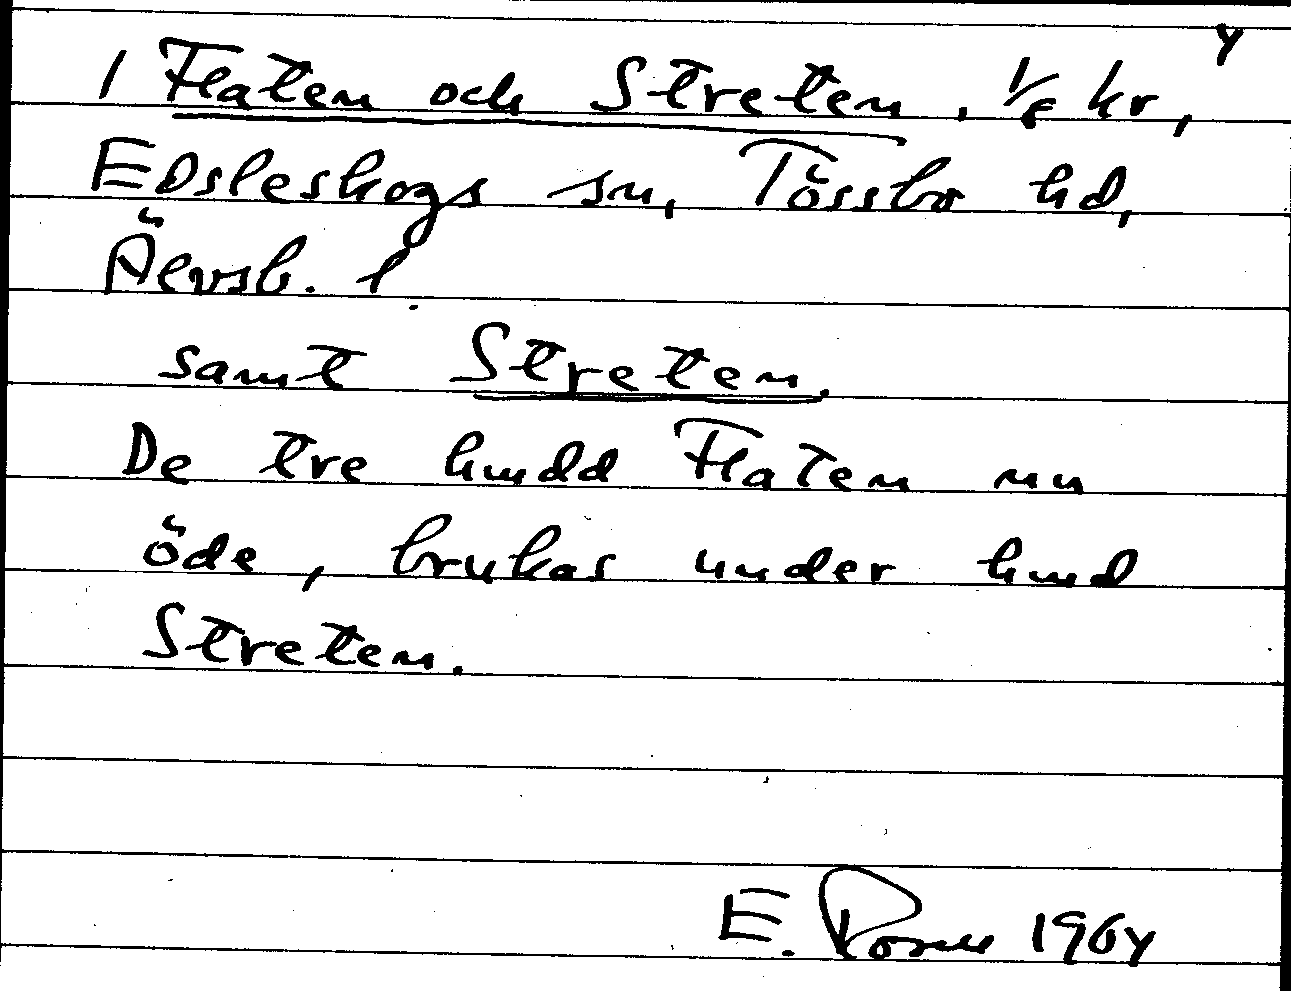 4
1 Flaten och Streten, 1/8 kr,
Edsleskogs sn, Tössbo hd,
Älvsb. l.
samt Streten.
De tre hmdd Flaten nu
öde, brukas under hmd
Streten.
E. 1964